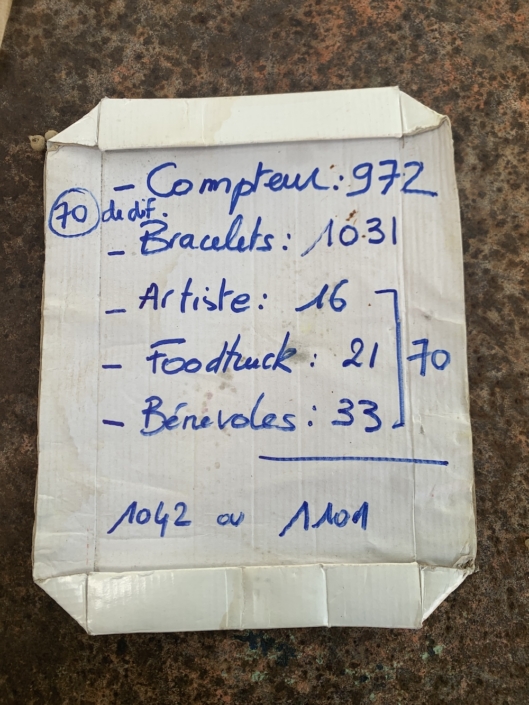 - Compteur : 972
70 de dif.
- Bracelets : 1031
- Artiste : 16
- Foodtruck : 21 70
- Bénevoles : 33
1042 ou 1101